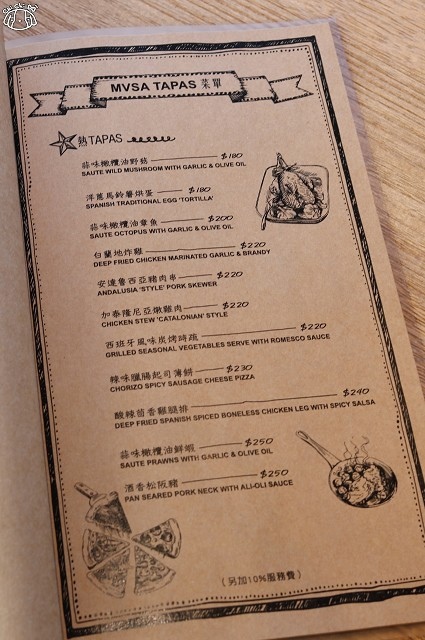 MVSA TAPAS 菜單
熱TAPAS
蒜味橄欖油野菇 $180
SAUTE WILD MUSHROOM WITH GARLIC & OLIVE OIL
洋蔥馬鈴薯烘蛋 $180
SPANISH TRADITIONAL EGG 'TORTILLA'
蒜味橄欖油章魚 $200
SAUTE OCTOPUS WITH GARLIC & OLIVE OIL
白蘭地炸雞 $220
DEEP FRIED CHICKEN MARINATED GARLIC & BRANDY
安達魯西亞豬肉串 $220
ANDALUSIA 'STYLE' PORK SKEWER
加泰隆尼亞燉雞肉 $220
CHICKEN STEW 'CATALONIAN' STYLE
西班牙風味炭烤時蔬 $220
GRILLED SEASONAL VEGETABLES SERVE WITH ROMESCO SAUCE
辣味臘腸起司薄餅 $230
CHORIZO SPICY SAUSAGE CHEESE PIZZA
酸辣茴香雞腿排 $240
DEEP FRIED SPANISH SPICED BONELESS CHICKEN LEG WITH SPICY SALSA
蒜味橄欖油鮮蝦 $250
SAUTE PRAWNS WITH GARLIC & OLIVE OIL
酒香松阪豬 $250
PAN SEARED PORK NECK WITH ALI-OLI SAUCE
(另加10%服務費)